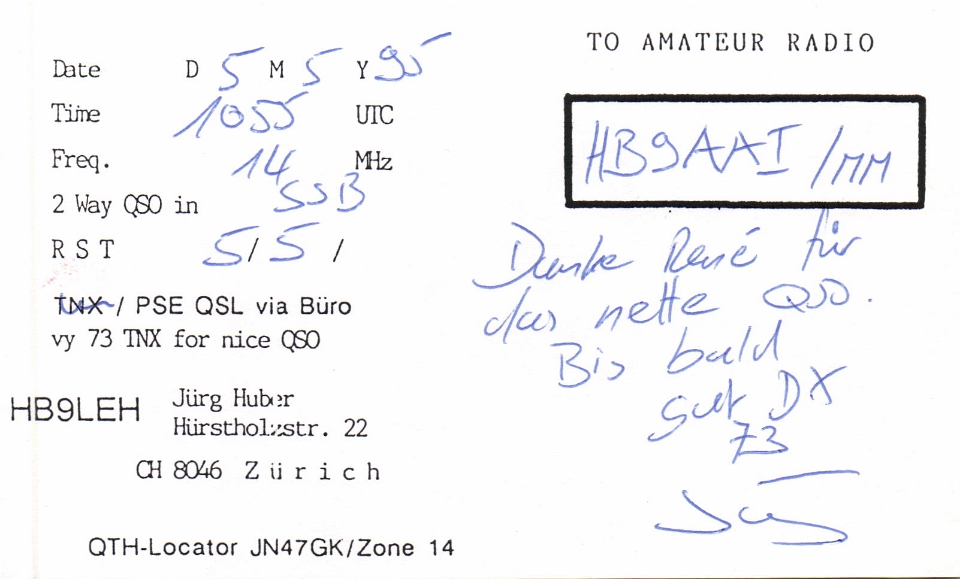 Date D 5 M 5 Y 95
Time 1055 UTC
Freq. 14 MHz
2 Way QSO in SSB
R S T 5/ 5 /
TNX / PSE QSL via Büro
vy 73 TNX for nice QSO
HB9LEH
Jürg Huber
Hürstholzstr. 22
CH 8046 Zürich
QTH-Locator JN47GK/Zone 14
TO AMATEUR RADIO
HB9AAI /MM
Danke René für
das nette QSO.
Bis bald
gut DX
73
Jürg